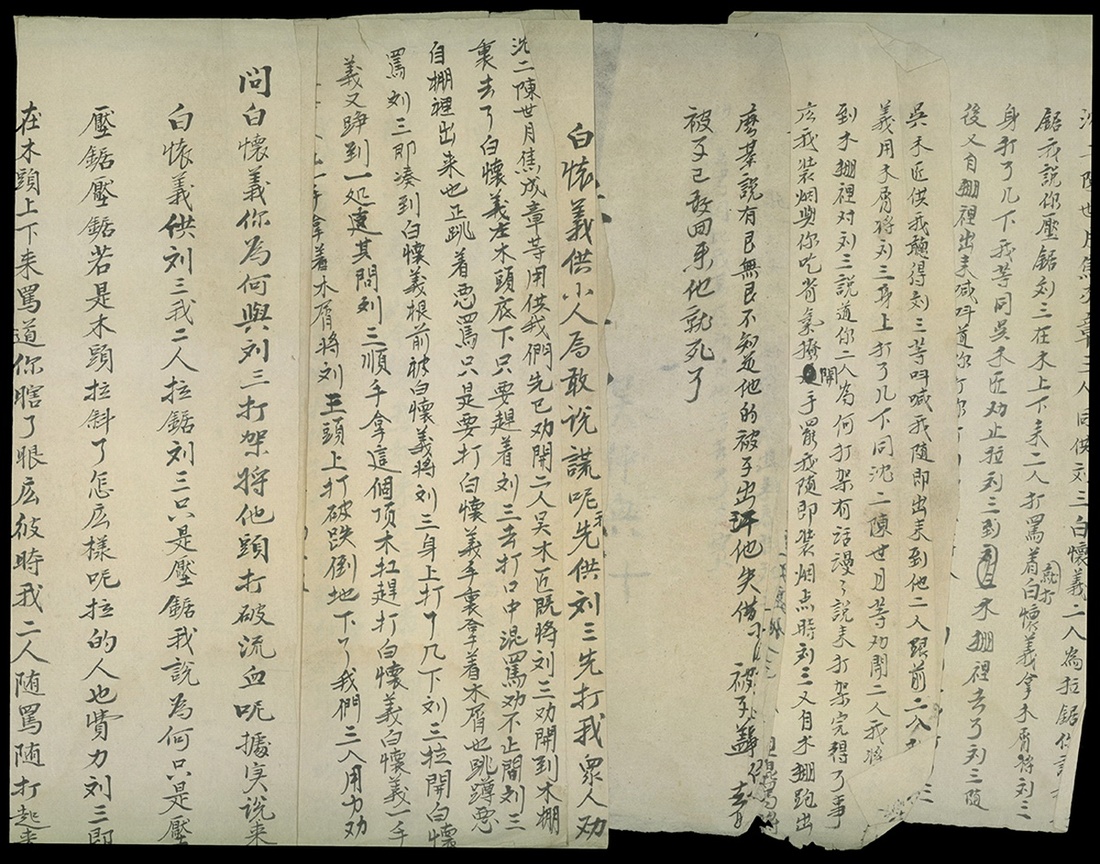 沈二陳世月焦成章三人同供刘三白懷義二人為拉鋸你說
鋸我說你壓鋸刘三在木上下來二人打罵着白懷義拿木屑將刘三
身打了几下我等同吳木匠劝止拉刘三到木棚裡去了刘三随
後又自棚裡出來喊呌道你打你打
吳木匠供我聽得刘三等呌喊我随即出來到他二人跟前
義用木屑將刘三身上打了几下同沈二陳世月等劝開二人我將
到木棚裡对刘三說道你二人為何打架有話漫々說來打架完得了事
広我装烟與你吃省氣撩開手罢我随即装烟点時刘三又自木棚跑出
麽某說有
被子已敢回来他就死了
白懷義供小人焉敢说謊呢先供刘三先打我眾人劝
沈二陳世月焦成章等用供我們先已劝開二人吴木匠既將刘三劝開到木棚
裏去了白懷義在木頭底下只要趕着刘三去打口中混罵劝不止間刘三
自棚裡出来也正跳着恶罵只是要打白懷義手裏拿着木屑也跳蹲恶
罵刘三即凑到白懷義根前被白懷義將刘三身上打了几下刘三拉開白懷
義又踭到一処遠其間刘三順手拿這個顶木扛趕打白懷義白懷義一手
上一手拿着木屑將刘三頭上打破跌倒地下了我們三人用力劝
問白懷義你為何與刘三打架將他頭打破流血呢據实说来
白懷義供刘三我二人拉鋸刘三只是壓鋸我説為何只是壓
壓鋸壓鋸若是木頭拉斜了怎広樣呢拉的人也費力刘三即
在木頭上下来罵道你瞎了眼広彼時我二人随罵随打起来